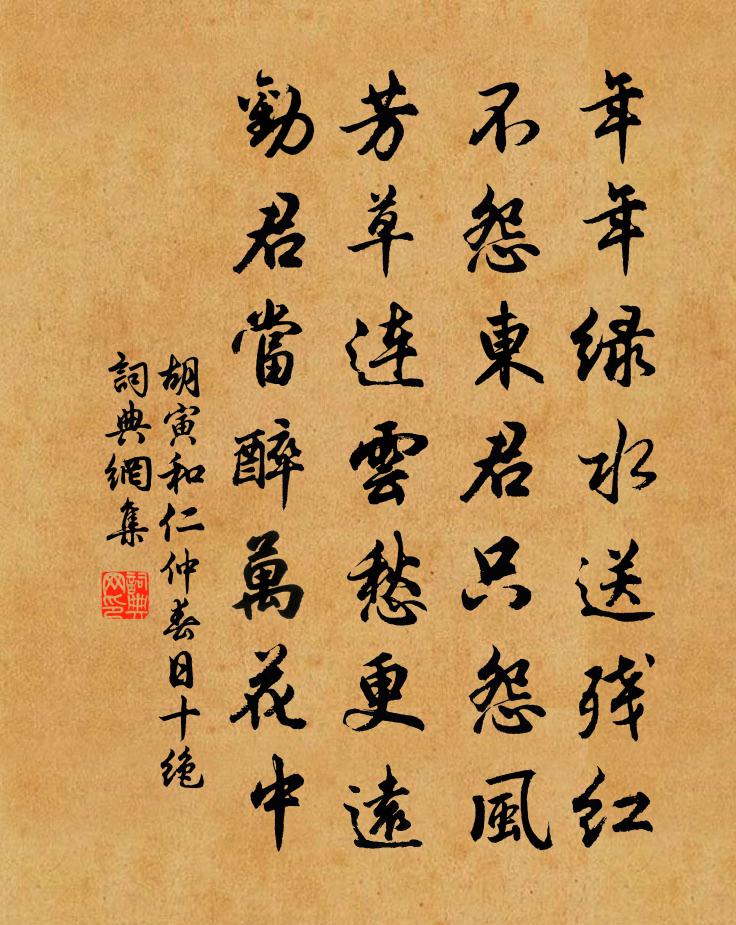 年年绿水送残红
不怨東君只怨風
芳草连雲愁更遠
勸君當醉萬花中
胡寅和仁仲春日十绝
詞典網集
詞典网印